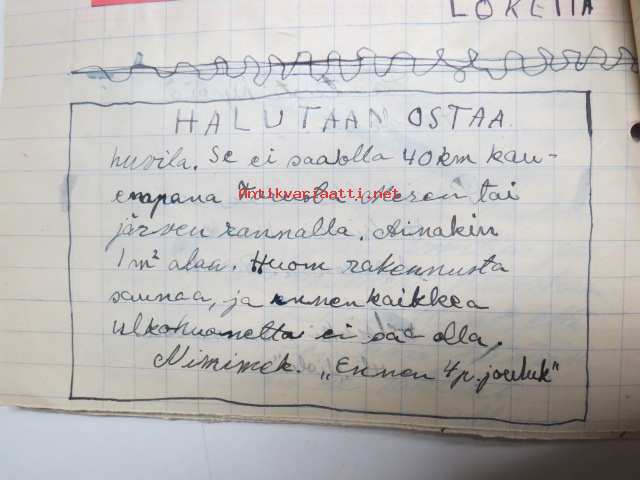 LOKETTA
HALUTAAN OSTAA
huvila. Se ei saa olla 40 km kau-
empana Meren tai
järven rannalla. Ainakin
1 m² alaa. Huom rakennusta
saunaa, ja ennenkaikkea
ulkohuonetta ei saa olla.
Nimimek. „Ennen 4 p. jouluk"
Antikvariaatti.net